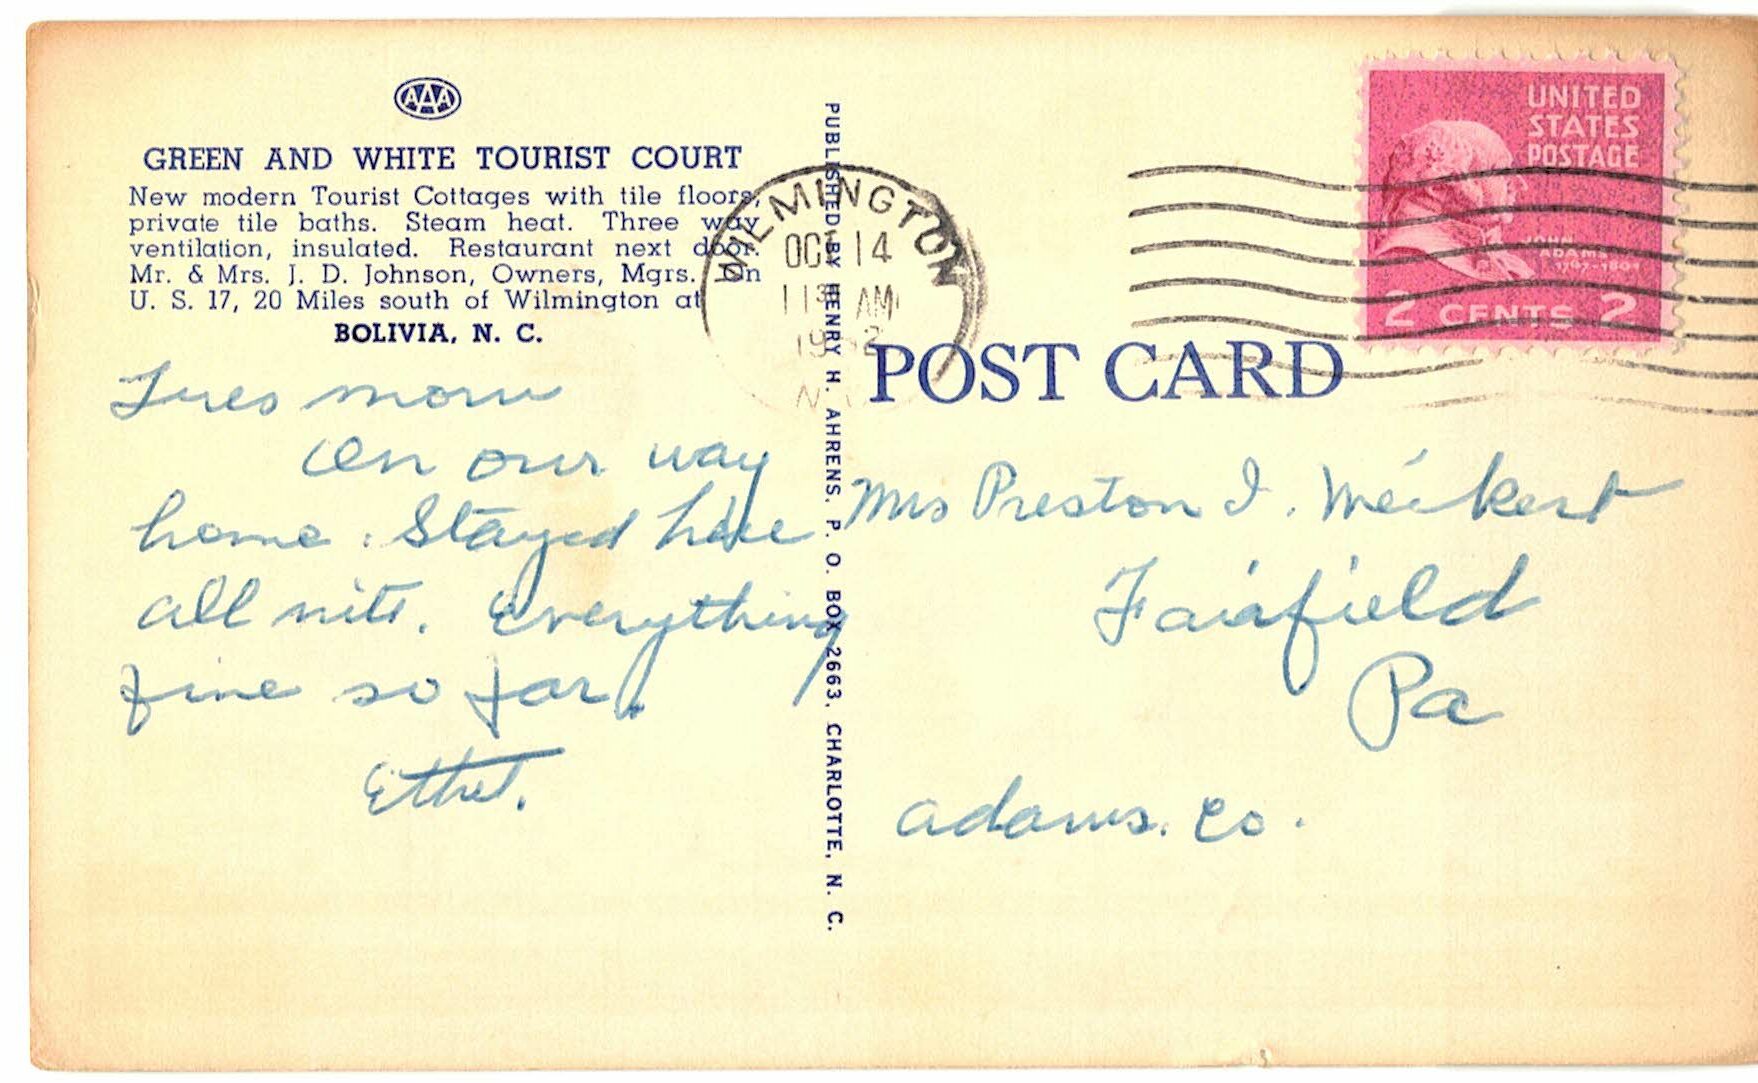 AAA
GREEN AND WHITE TOURIST COURT
New modern Tourist Cottages with tile floors,
private tile baths. Steam heat. Three way
ventilation, insulated. Restaurant next door.
Mr. & Mrs. J. D. Johnson, Owners, Mgrs. On
U. S. 17, 20 Miles south of Wilmington at
BOLIVIA, N. C.
Tues morn
On our way
home. Stayed here
all nite. Everything
fine so far.
Ethel.
PUBLISHED BY HENRY H. AHRENS, P. O. BOX 2663, CHARLOTTE, N. C.
WILMINGTON
OCT 14
AM
POST CARD
UNITED
STATES
POSTAGE
JOHN
ADAMS
1797-1801
2 CENTS 2
Mrs Preston I. Weikert
Fairfield
Pa
Adams. Co.